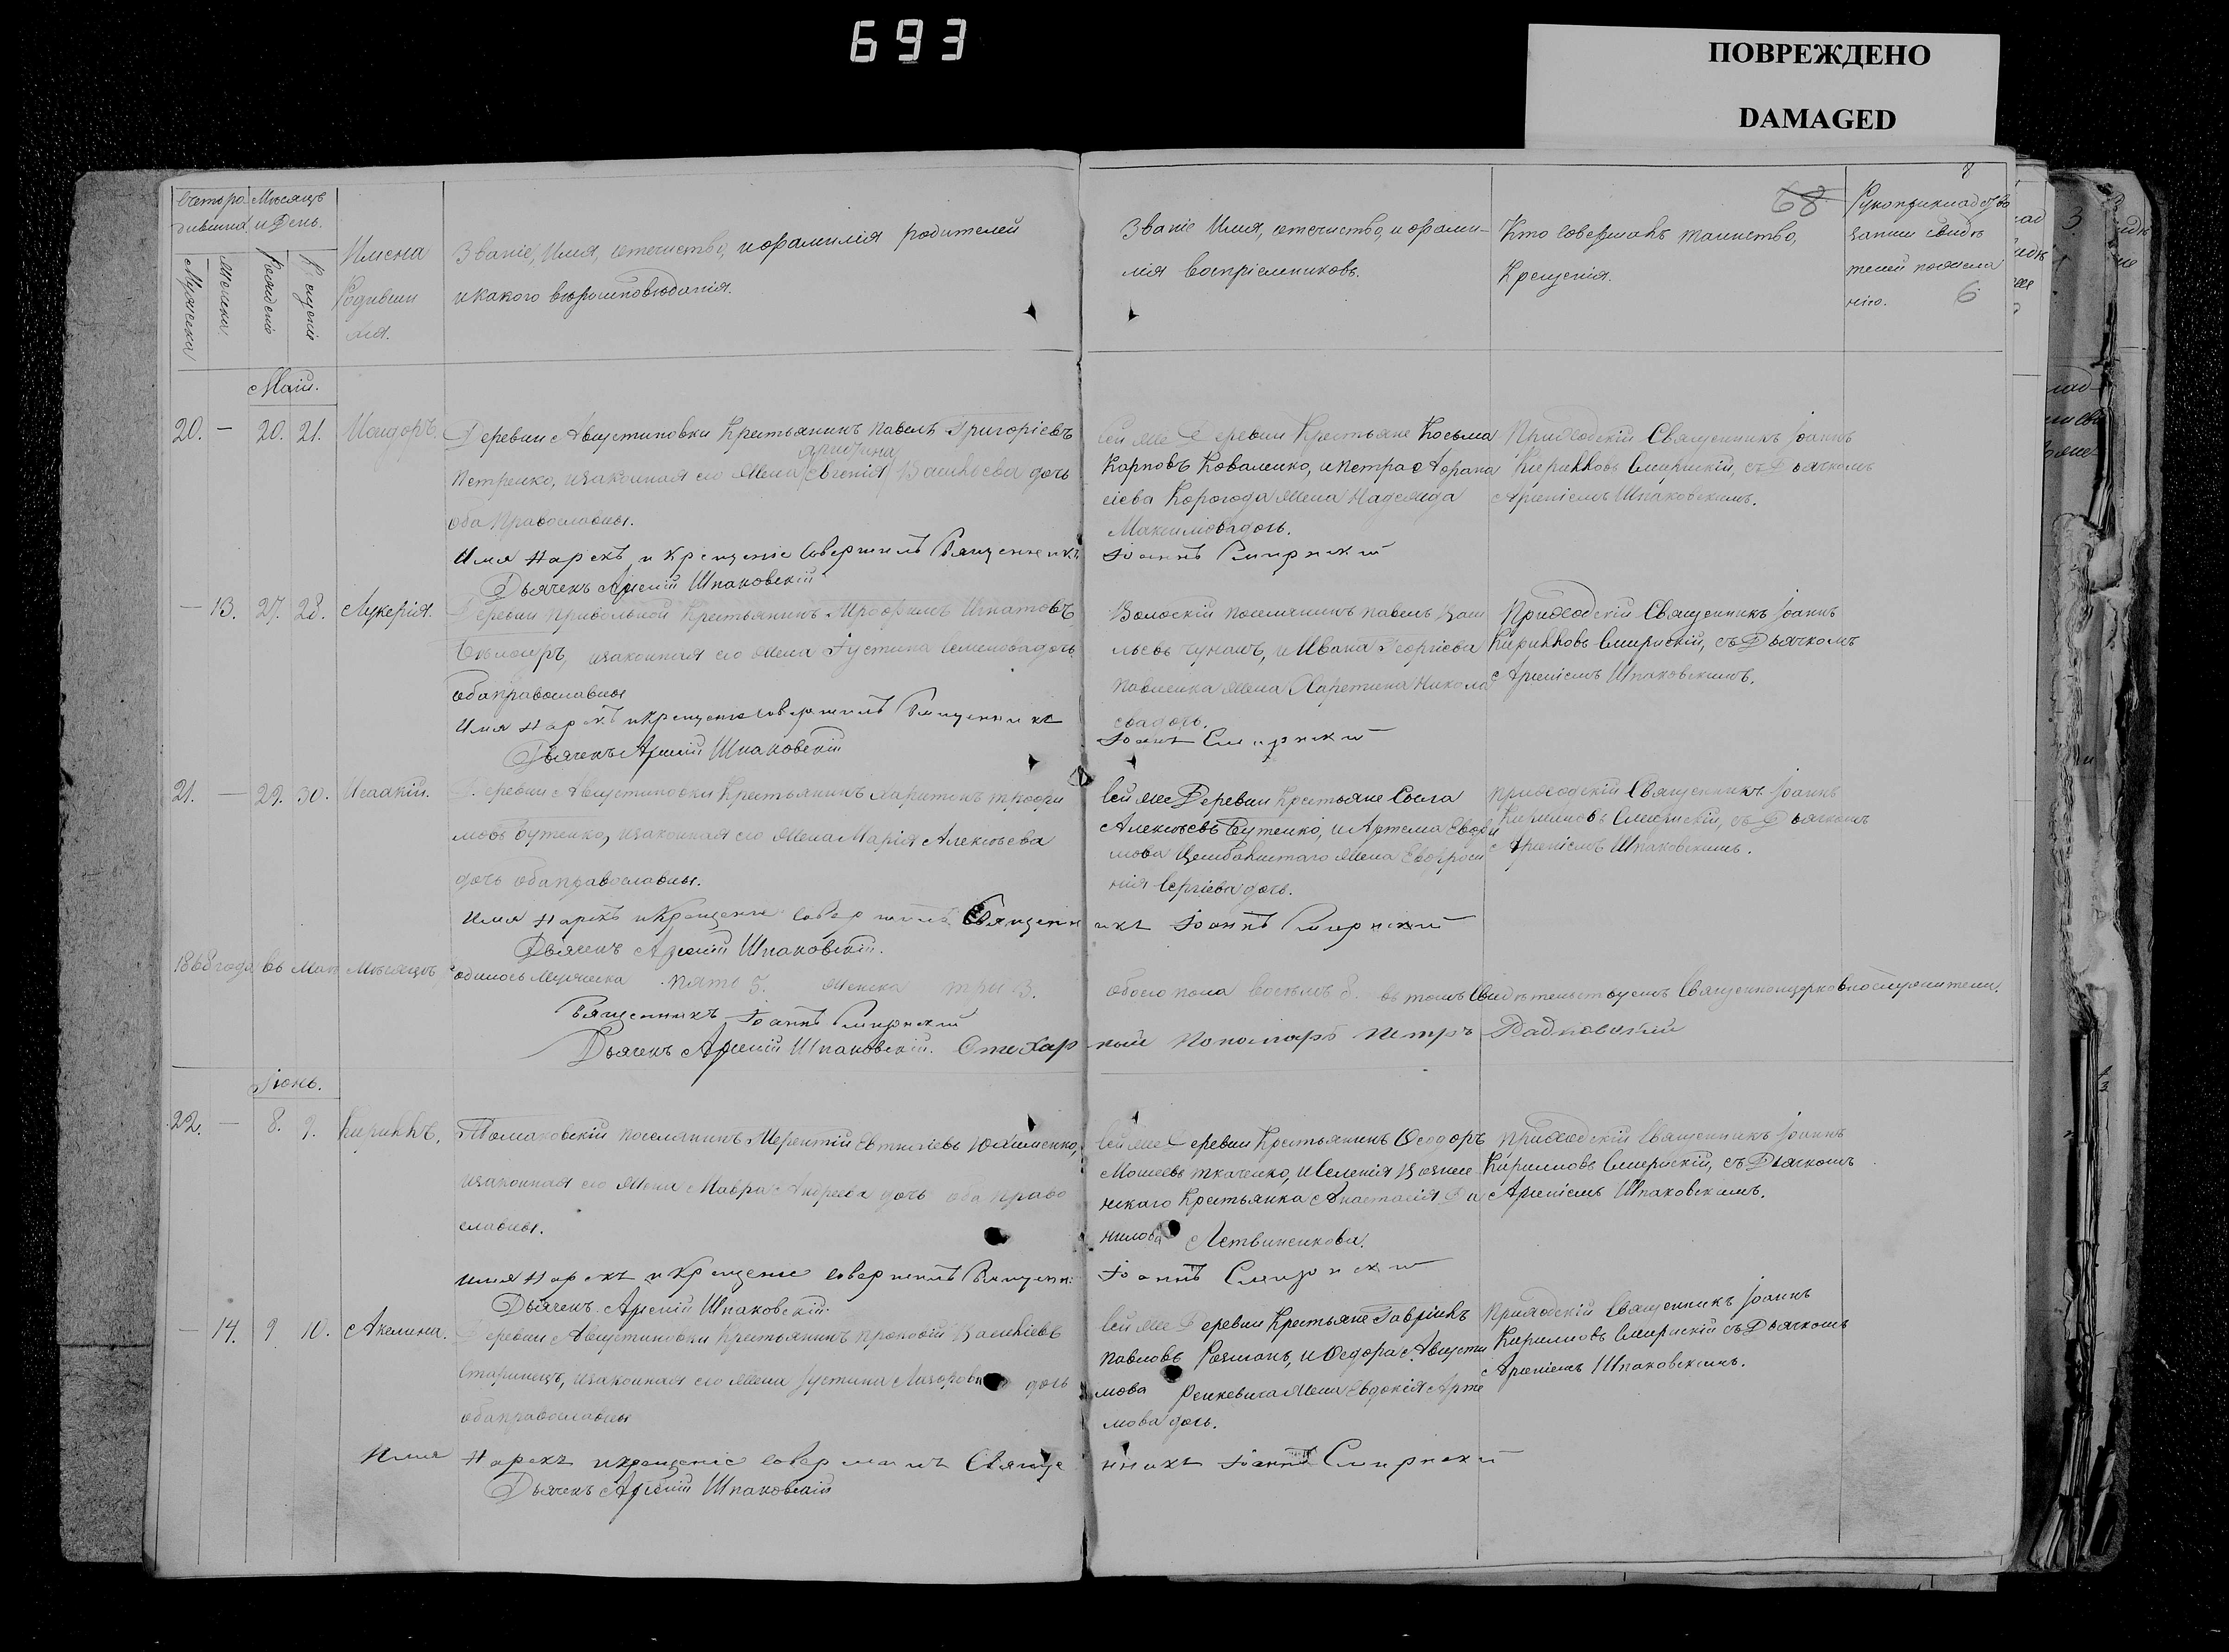 693
ПОВРЕЖДЕНО
DAMAGED
Мѣсяцъ
и День.
Мужеска
Женска
Рожденія
Крещенія
Имена
Родивши
хся.
Званіе, Имя, отчиство, и фамилія родителей
и какого вѣроисповѣданія.
Званіе Имя, отчиство, и фами-
лія воспріемниковъ.
Кто совершалъ таинство,
Крещенія.
68
6
Рукоприкладство
записи свидѣ
телей по жела
нію.
Маій.
20. — 20. 21. Исидоръ.
Деревни Августиновки Крестьянинъ Павелъ Григоріевъ
Петренко, и законная его жена Евгенія Василіева дочь
оба православны.
Имя Нарекъ и Крещеніе Совершилъ Священникъ
Іоаннъ Смирнскій
Дьячекъ Арсеній Шпаковскій
Сей же Деревни Крестьяне Косьма
Карповъ Коваленко, и Петра Афана
сіева Корогода жена Надежда
Максимова дочь.
Приходскій Священникъ Іоаннъ
Кирилловъ Смирнскій, съ Дьячкомъ
Арсеніемъ Шпаковскимъ.
— 13. 27. 28. Лукерія.
Деревни Привольной Крестьянинъ Трофимъ Игнатовъ
и законная его жена Іустина Семенова дочь
оба православны
Имя Нарекъ и Крещеніе Совершилъ Священникъ
Іоаннъ Смирнскій
Дьячекъ Арсеній Шпаковскій
Волоскій поселянинъ Павелъ Васи
льевъ Чумакъ, и Ивана Георгіева
Павленка жена Харитина Никола
ева дочь.
Приходскій Священникъ Іоаннъ
Кирилловъ Смирнскій, съ Дьячкомъ
Арсеніемъ Шпаковскимъ.
21. — 29. 30. Исаакій.
Деревни Августиновки Крестьянинъ Харитонъ Трофи
мовъ Бутенко, и законная его жена Марія Алексѣева
дочь оба православны.
Имя Нарекъ и Крещеніе Совершилъ Священникъ Іоаннъ Смирнскій
Дьячекъ Арсеній Шпаковскій.
Сей же Деревни Крестьяне Савва
Алексѣевъ Бутенко, и Артема Евфи
мова жена Евфроси
нія Сергіева дочь.
Приходскій Священникъ Іоаннъ
Кирилловъ Смирнскій, съ Дьячкомъ
Арсеніемъ Шпаковскимъ.
1868 года въ Маи Мѣсяцѣ родилось Мужеска пять 5. Женска три 3. обоего пола восемь 8. въ томъ Свидѣтельствуемъ Священноцерковнослужители.
Священникъ Іоаннъ Смирнскій
Дьячекъ Арсеній Шпаковскій. Стихарный Пономарь Петръ Радковскій
Іюнь.
22. — 8. 9. Кириллъ.
Томаковскій поселянинъ Терентій Евтихіевъ Юхименко,
и законная его жена Мавра Андреева дочь оба право
славны.
Имя Нарекъ и Крещеніе Совершилъ Священн.
Іоаннъ Смирнскій
Дьячекъ Арсеній Шпаковскій.
Сей же Деревни Крестьянинъ Ѳеодоръ
Моисеевъ Ткаченко, и Селенія Вознесе
нскаго Крестьянка Анастасія Да
нилова Летвиненкова.
Приходскій Священникъ Іоаннъ
Кирилловъ Смирнскій, съ Дьячкомъ
Арсеніемъ Шпаковскимъ.
— 14. 9 10. Акелина.
Деревни Августиновки Крестьянинъ Прокопій Василіевъ
Старинецъ, и законная его жена Іустина дочь
оба православны
Имя Нарекъ и Крещеніе Совершилъ Священникъ Іоаннъ Смирнскій
Дьячекъ Арсеній Шпаковскій
Сей же Деревни Крестьяне Гавріилъ
Павловъ Розманъ, и Ѳедора Августи
мова Ренкевича жена Евдокія Арте
мова дочь.
Приходскій Священникъ Іоаннъ
Кирилловъ Смирнскій съ Дьячкомъ
Арсеніемъ Шпаковскимъ.